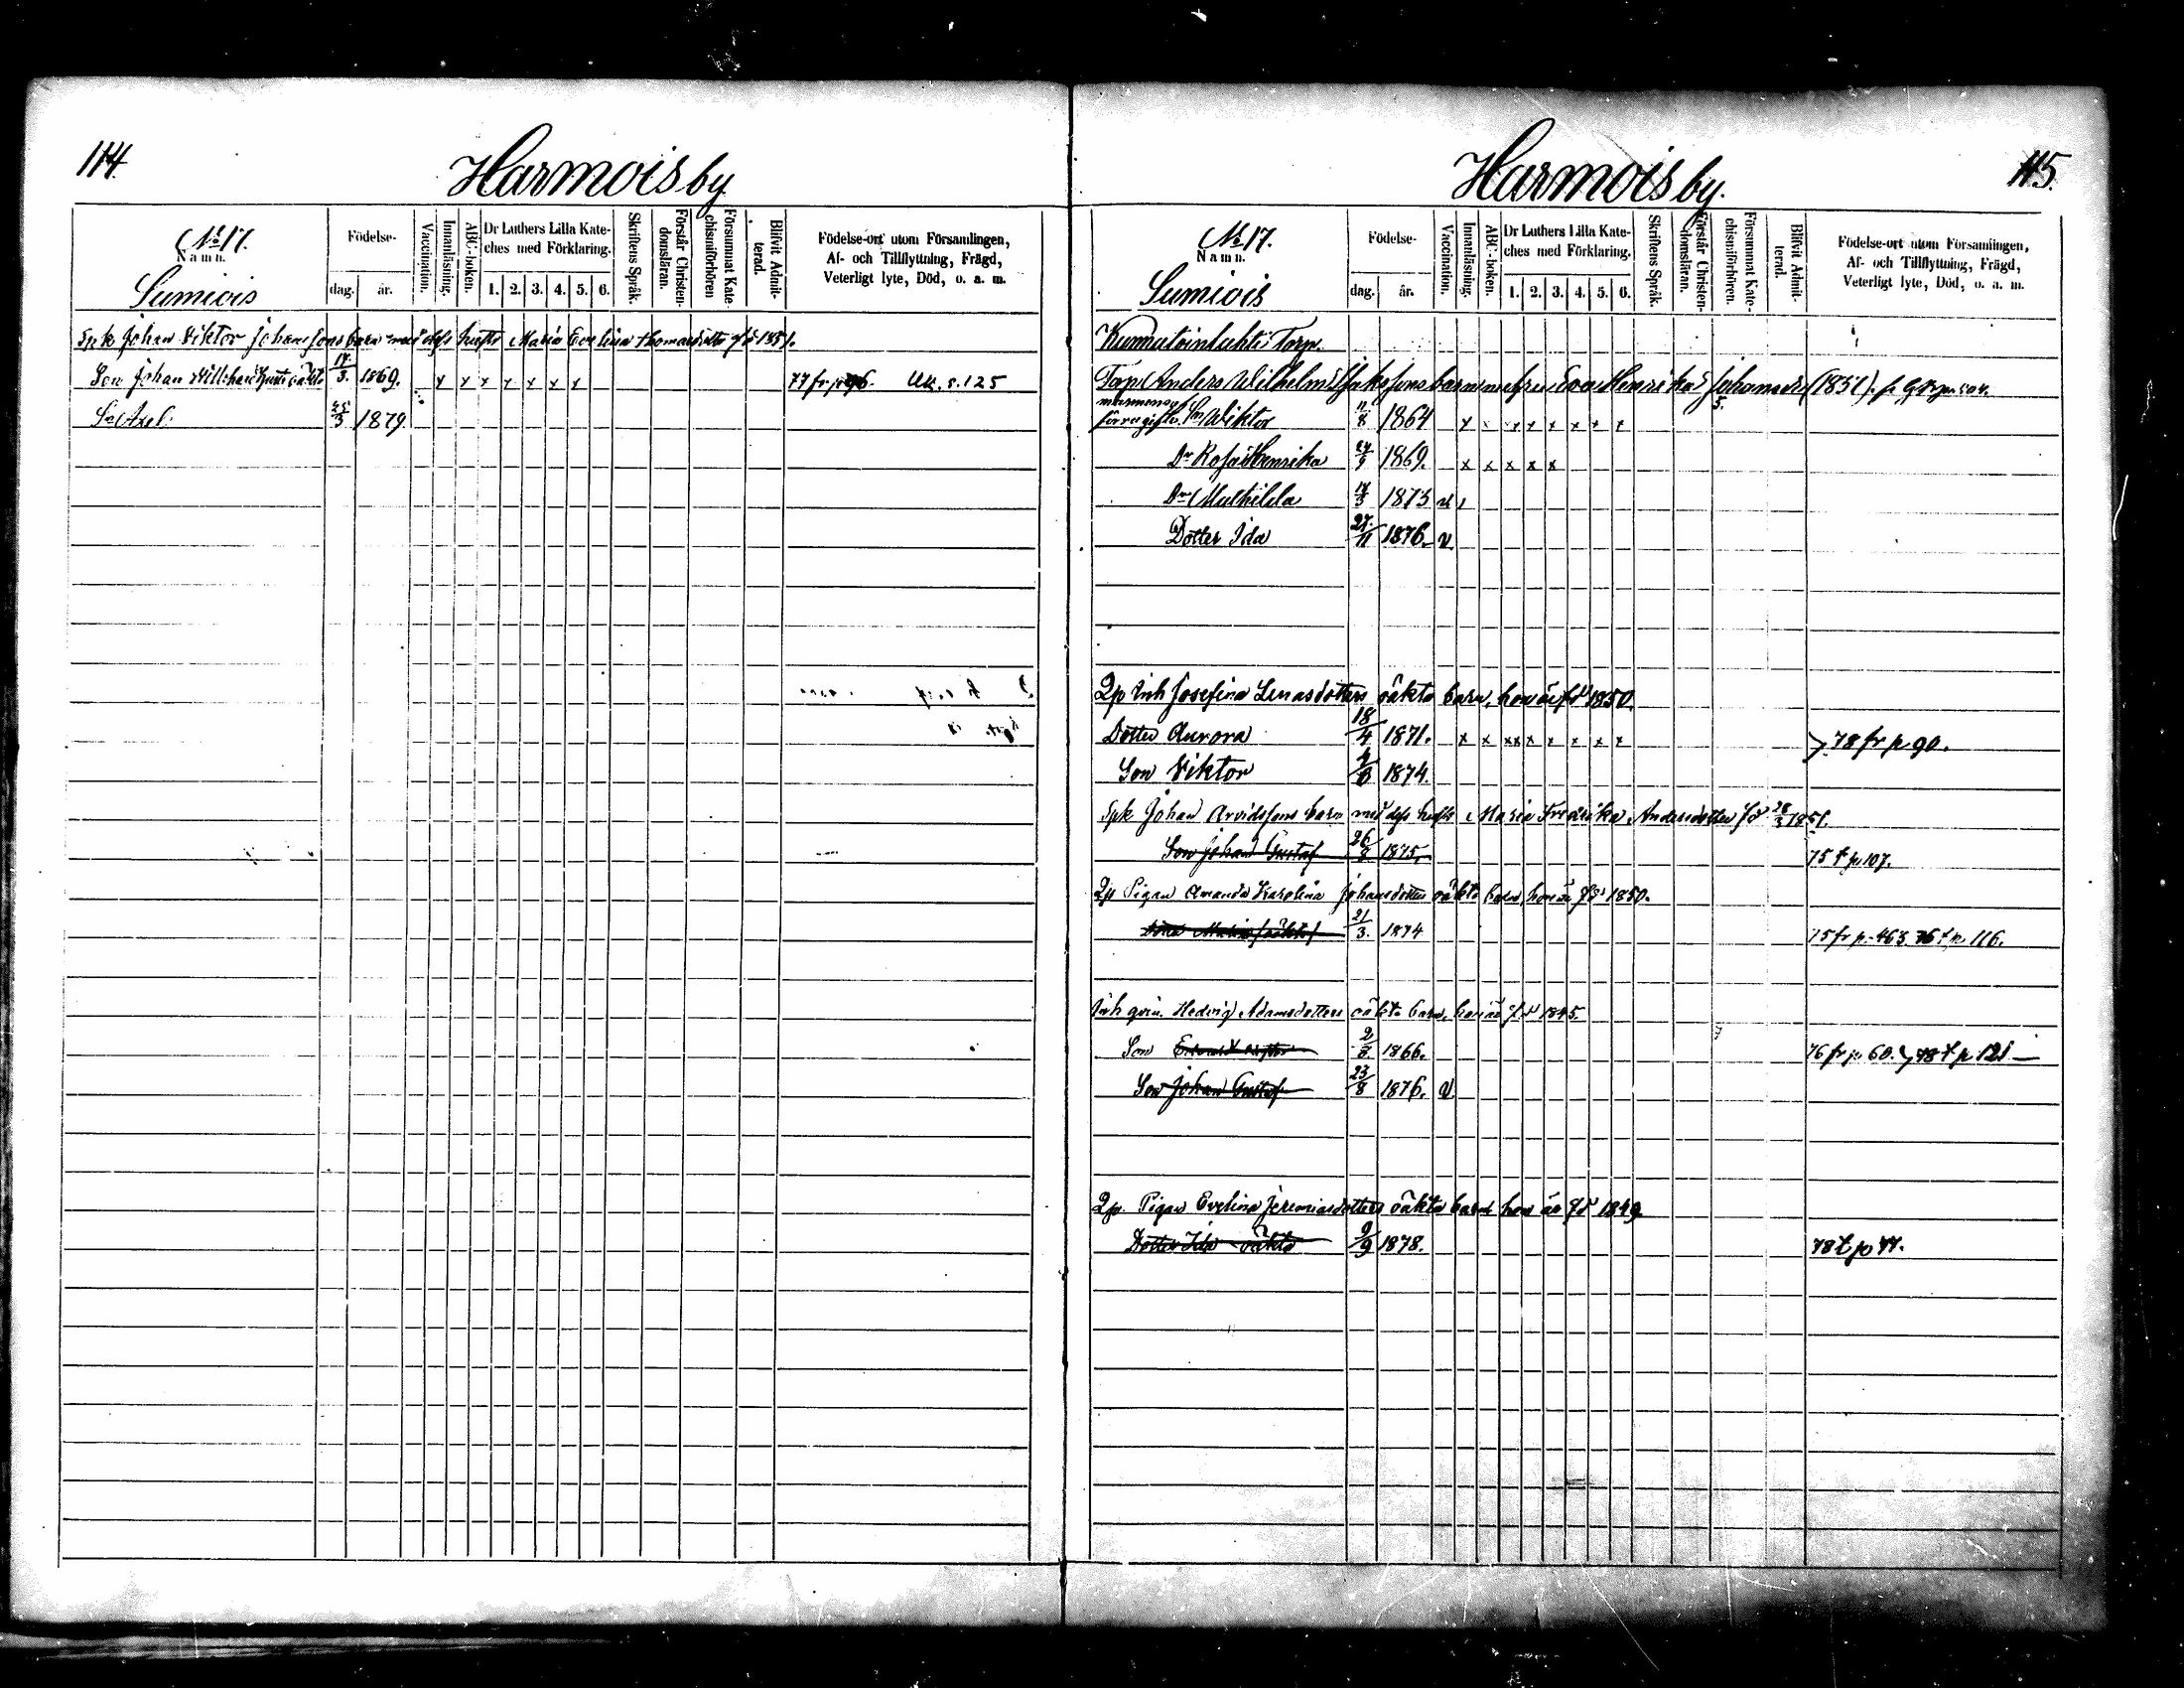 114.
Harmois by
No 17.
Namn.
Sumiois
Födelse-
dag. år.
Vaccination.
Innanläsning.
ABC-boken.
Dr Luthers Lilla Kate-
ches med Förklaring.
1. 2. 3. 4. 5. 6.
Skriftens Språk.
Förstår Christen-
domsläran.
Försummat Kate-
chismiförhören
Blifvit Admit-
terad.
Födelse-ort utom Församlingen,
Af- och Tillflyttning, Frägd,
Veterligt lyte, Död, o. a. m.
Spk Johan Viktor Johanssons barn med dess hustr Maria Evelina Thomasdotter född 1851.
Son Johan 17/3. 1869. x x x x x x x 77 fr p 96. Uk. s. 125
So Axel 25/3 1879
115.
Harmois by.
No 17.
Namn.
Sumiois
Födelse-
dag. år.
Vaccination.
Innanläsning.
ABC-boken.
Dr Luthers Lilla Kate-
ches med Förklaring.
1. 2. 3. 4. 5. 6.
Skriftens Språk.
Förstår Christen-
domsläran.
Försummat Kate-
chismiförhören.
Blifvit Admit-
terad.
Födelse-ort utom Församlingen,
Af- och Tillflyttning, Frägd,
Veterligt lyte, Död, o. a. m.
Torp.
Torp. Anders Wilhelm Jakssons barn m Eva Henrika Johansdr (1851).
mannens af
förra gifte. Sn Wiktor 11/8 1864 x x x x x x x x
Dr Rosa Henrika 1869. x x x x x
Dr Mathilda 17/3 1873 v
Dotter Ida 27/11 1876. v
Qp Inh Josefina Lenasdotters oäkta barn, hon är fd 1850.
Dotter Aurora 18/4 1871. x x xx x x x x x 78 fr p 90.
Son Viktor 1874.
Spk Johan Arvidssons barn med dess hustr Maria Fredrika Andersdotter fd 28/3 1851.
Son Johan Gustaf 26/8 1875. 75 t p 107.
Qp Pigan Amanda Karolina Johansdotters oäkta barn, hon är fd 1850.
21/3. 1874 75 fr p. 463. 76 t p. 116.
Inh qvin. Hedvig Adamsdotters oäkta barn, hon är fd 1845.
Son 2/8. 1866. 76 fr p 60. 78 t p 121
Son Johan Gustaf 23/8 1876. v
Qp. Pigan Evelina Jeremiasdotters oäkta barn hon är fd 1849.
Dotter Ida oäkta 9/9 1878. 78 t p 77.